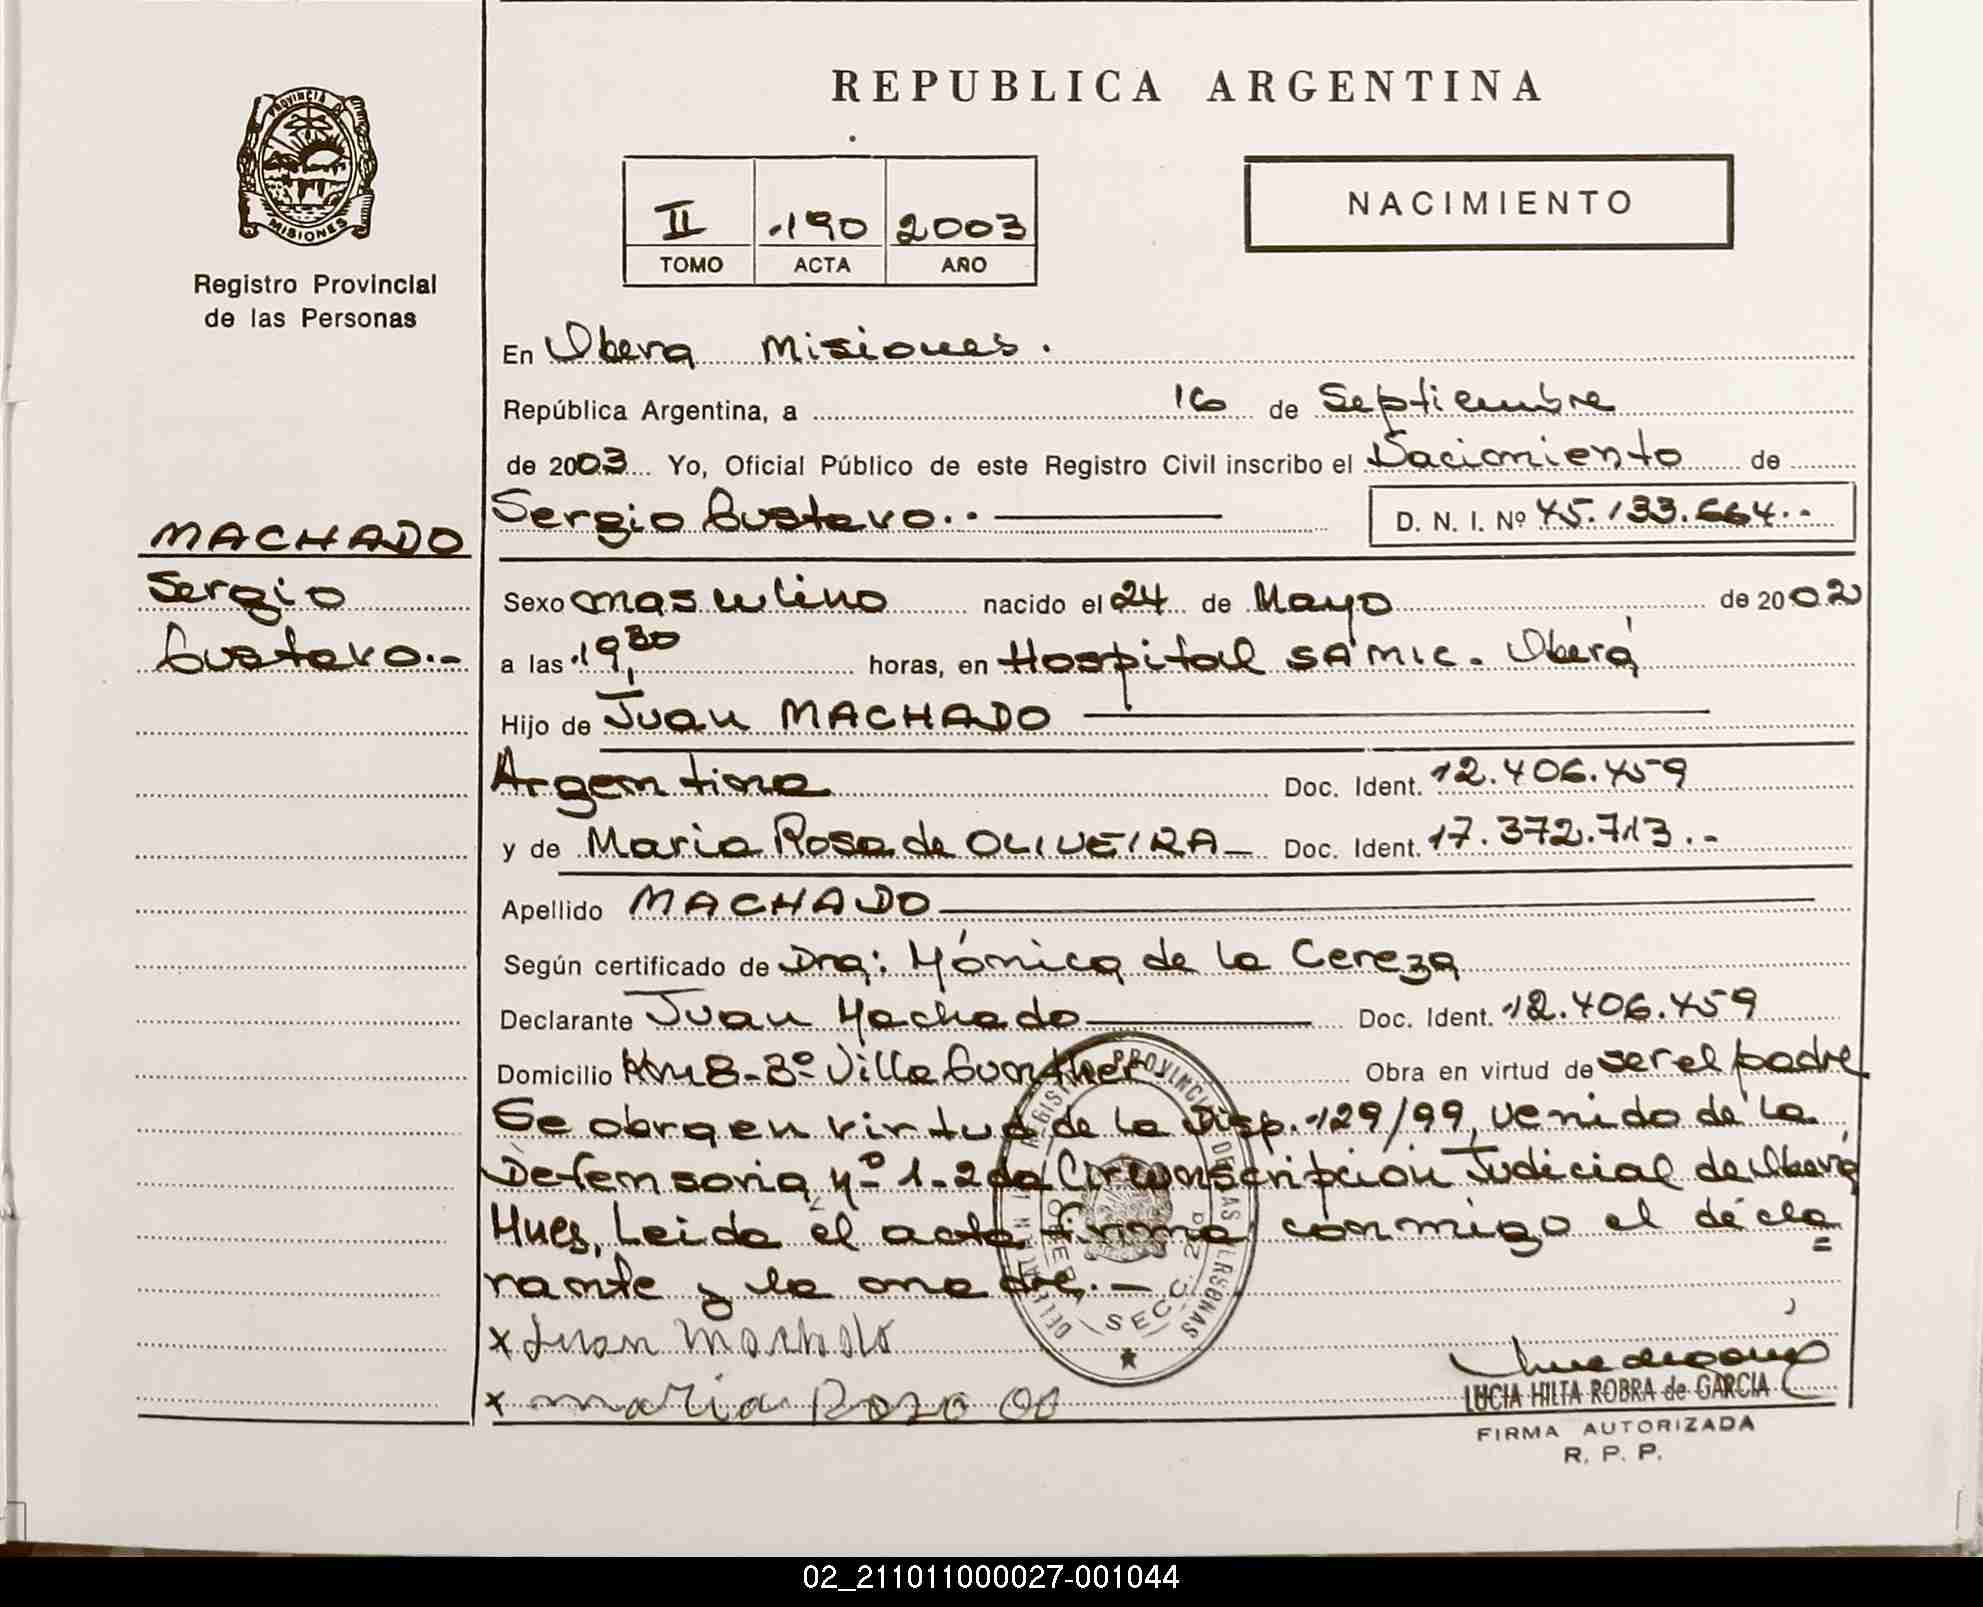 REPUBLICA ARGENTINA
PROVINCIA DE
MISIONES
Registro Provincial
de las Personas
II .190 2003
TOMO ACTA AÑO
NACIMIENTO
En Obera Misiones.
República Argentina, a 16 de Septiembre
de 2003 Yo, Oficial Público de este Registro Civil inscribo el Nacimiento de
Sergio Gustavo.. D. N. I. Nº 45.133.664..
MACHADO
Sergio
Gustavo.-
Sexo masculino nacido el 24 de Mayo de 2002
a las 19,30 horas, en Hospital SAMIC. Oberá
Hijo de Juan MACHADO
Argentina Doc. Ident. 12.406.459
y de Maria Rosa de OLIVEIRA_ Doc. Ident. 17.372.713.-
Apellido MACHADO
Según certificado de Dra: Mónica de la Cereza
Declarante Juan Machado Doc. Ident. 12.406.459
Domicilio Km 8-3º Villa Gunther Obra en virtud de ser el padre
Se obra en virtud de la Disp. 129/99, venido de la
Defensoria nº 1-2da Circunscripcion Judicial de Oberá
Mnes, Leida el acta firma conmigo el decla=
rante y la madre.-
SECC. 2a
x Juan Machado
x maria Rosa
LUCIA HILTA ROBRA de GARCIA
FIRMA AUTORIZADA
R. P. P.
02_211011000027-001044